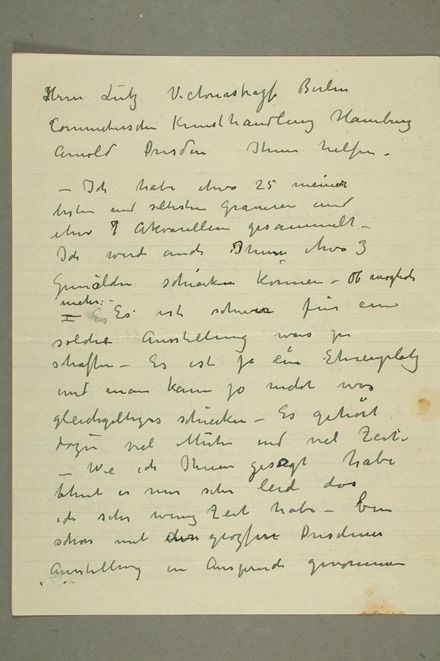 Herrn Lutz Victoriastrasse Berlin
Commetersche Kunsthandlung Hamburg
Arnold Dresden Ihnen helfen –
– Ich habe etwa 25 meiner
besten und seltesten Gravuren und
etwa 7 Akvarellen gesammelt –
Ich werde auch Ihnen etwa 3
Gemälden schicken können – Ob möglich
mehr:–
Es ist schwer für eine
solche Ausstellung was zu
schaffen – Es ist ja ein Ehrenplatz
und man kann ja nicht was
gleichgeltiges schicken – Es gehört
dazu viel Mühe und viel Zeit.
– Wie ich Ihnen gesagt habe
thut es mir sehr leid das
ich sehr wenig Zeit habe – bin
schon mit Dresdener
Ausstellung in Anspruch genommen